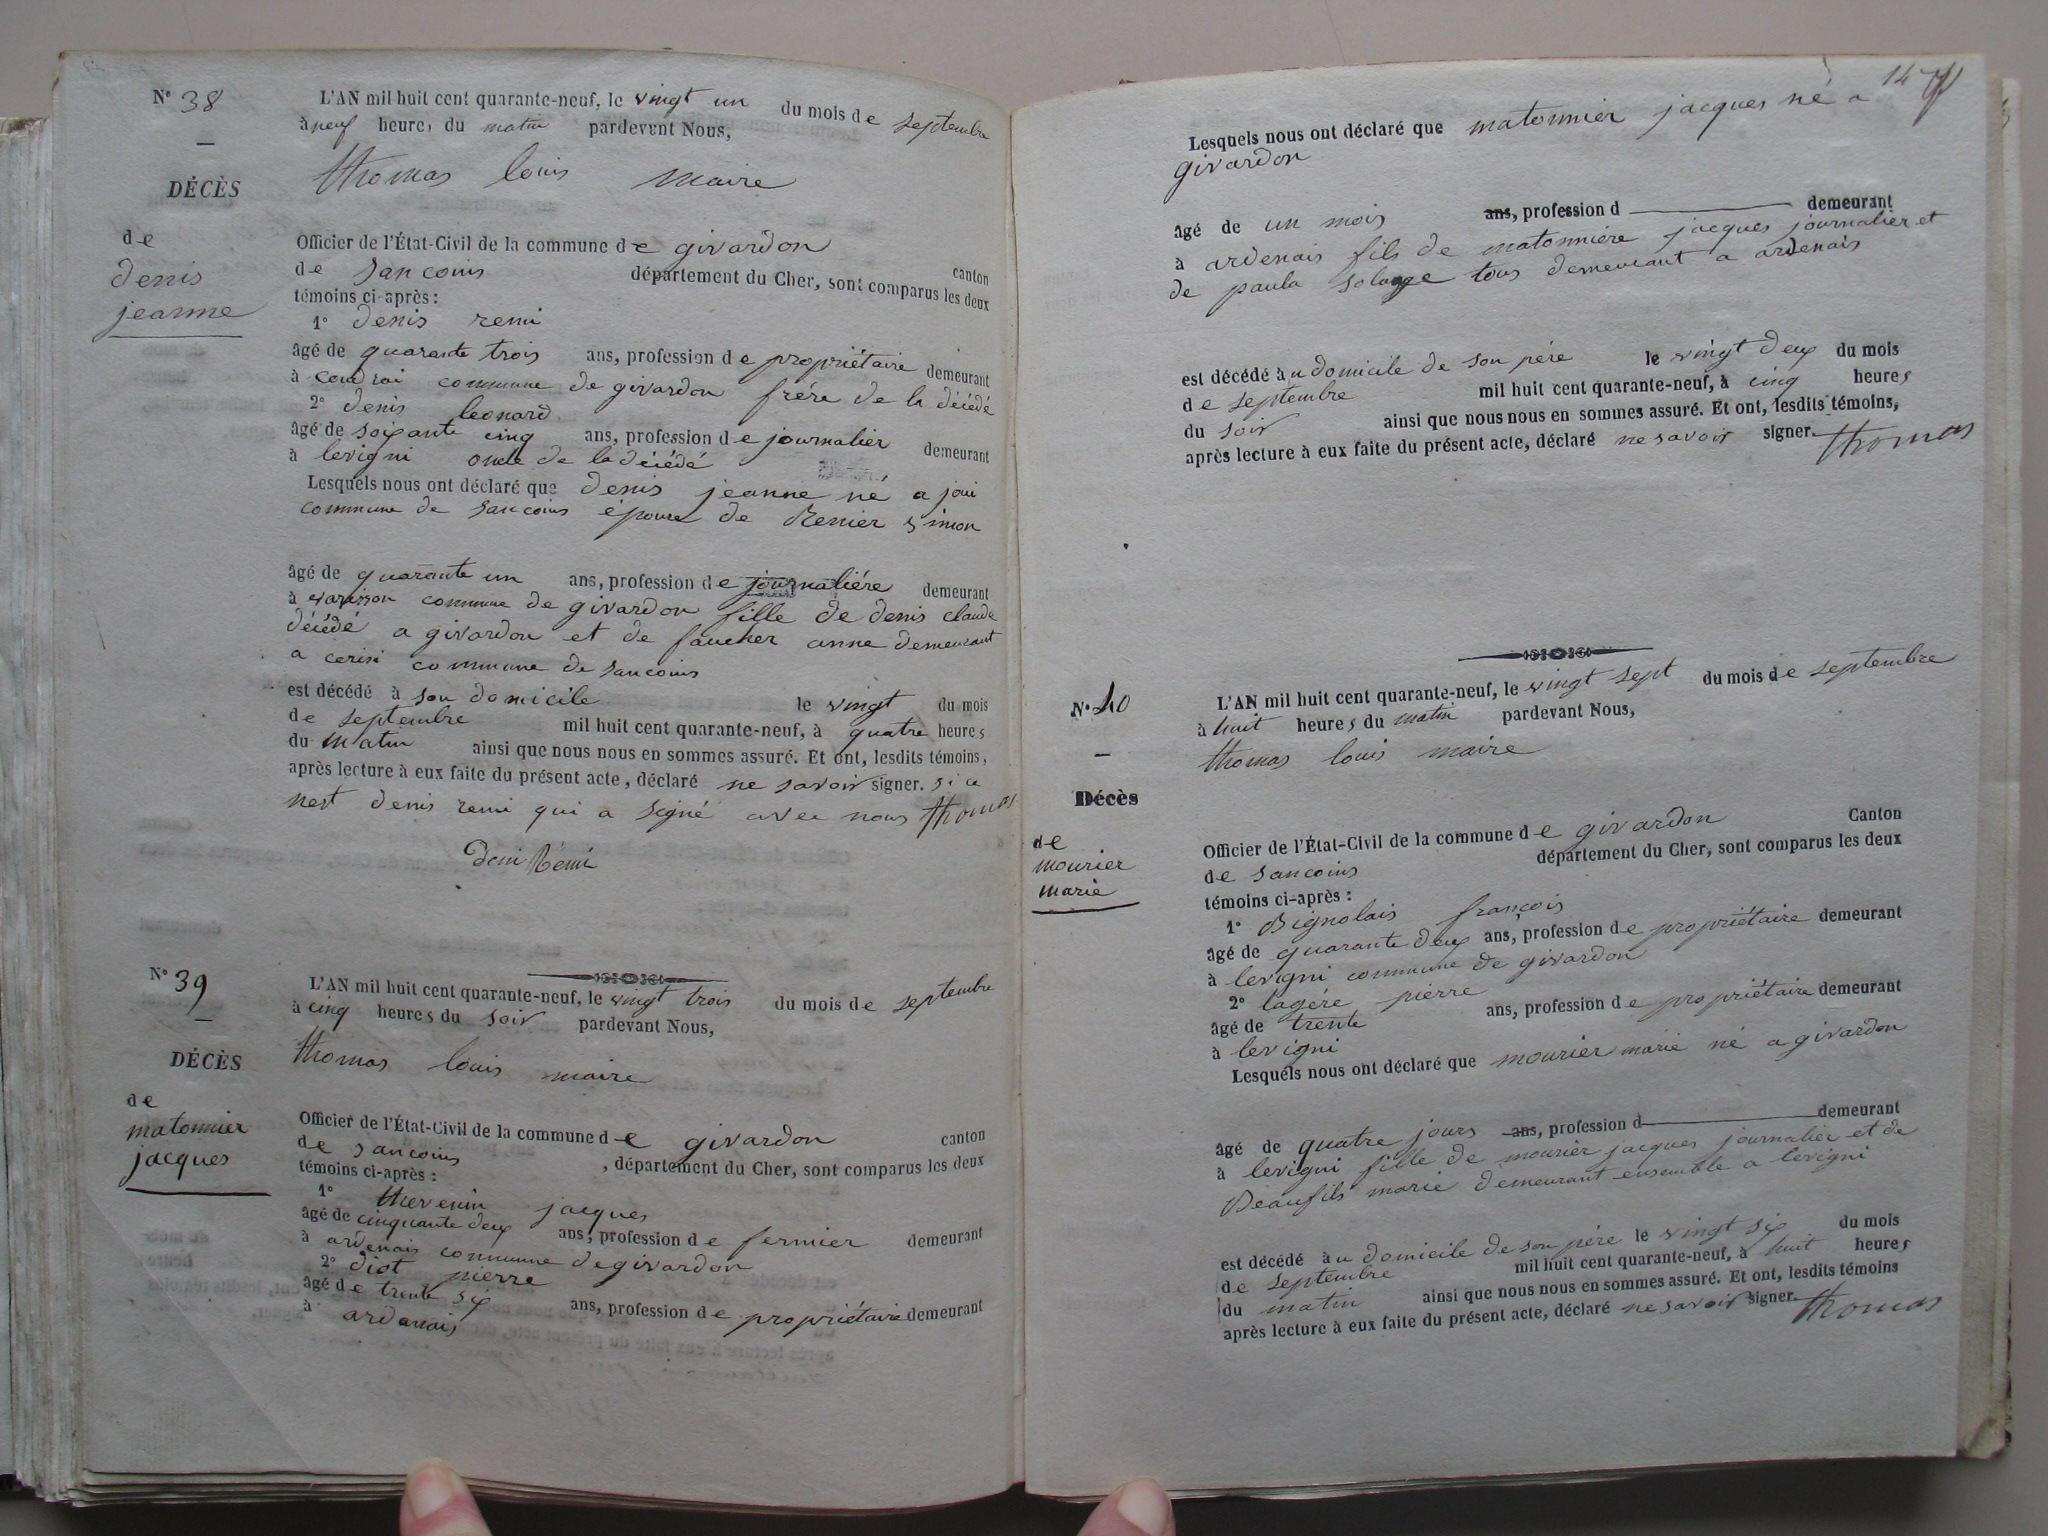 N° 38
L'AN mil huit cent quarante-neuf, le vingt un du mois de septembre
à neuf heures du matin pardevent Nous,
thomas louis maire
DÉCÈS
de
denis
jeanne
Officier de l'État-Civil de la commune de givardon
de sancoins canton
département du Cher, sont comparus les deux
témoins ci-après :
1° denis remi
âgé de quarante trois ans, profession de propriétaire demeurant
à coudrai commune de givardon frére de la décédé
2° denis leonard
âgé de soixante cinq ans, profession de journalier demeurant
à levigni oncle de la décédé
Lesquels nous ont déclaré que denis jeanne né a joui
commune de sancoins épouse de Renier simon
âgé de quarante un ans, profession de journaliére demeurant
à commune de givardon fille de denis claude
décédé a givardon et de faucher anne demeurant
a cerisi commune de sancoins
est décédé à son domicile le vingt du mois
de septembre mil huit cent quarante-neuf, à quatre heures
du matin ainsi que nous nous en sommes assuré. Et ont, lesdits témoins,
après lecture à eux faite du présent acte, déclaré ne savoir signer. si ce
nest denis remi qui a signé avec nous thomas
deni Rémi
N° 39
L'AN mil huit cent quarante-neuf, le vingt trois du mois de septembre
à cinq heures du soir pardevant Nous,
thomas louis maire
DÉCÈS
de
matonnier
jacques
Officier de l'État-Civil de la commune de givardon canton
de sancoins , département du Cher, sont comparus les deux
témoins ci-après :
1° thevenin jacques
âgé de cinquante deux ans, profession de fermier demeurant
à ardenais commune de givardon
2° diot pierre
âgé de trente six ans, profession de propriétaire demeurant
à ardenais
14
Lesquels nous ont déclaré que matonnier jacques né a
givardon
âgé de un mois ans, profession d demeurant
à ardenais fils de matonniére jacques journalier et
de paula solange tous demeurant a ardenais
est décédé au domicile de son pére le vingt deux du mois
de septembre mil huit cent quarante-neuf, à cinq heures
du soir ainsi que nous nous en sommes assuré. Et ont, lesdits témoins,
après lecture à eux faite du présent acte, déclaré ne savoir signer. thomas
N° 40
L'AN mil huit cent quarante-neuf, le vingt sept du mois de septembre
à huit heures du matin pardevant Nous,
thomas louis maire
Décès
de
mourier
marie
Officier de l'État-Civil de la commune de givardon Canton
de sancoins département du Cher, sont comparus les deux
témoins ci-après :
1° Bignolais françois
âgé de quarante deux ans, profession de propriétaire demeurant
à levigni commune de givardon
2° lagére pierre
âgé de trente ans, profession de propriétaire demeurant
à levigni
Lesquels nous ont déclaré que mourier marie né a givardon
âgé de quatre jours ans, profession d demeurant
à levigni fille de mourier jacques journalier et de
Beaufils marie demeurant ensemble a levigni
est décédé au domicile de son pére le vingt six du mois
de septembre mil huit cent quarante-neuf, à huit heures
du matin ainsi que nous nous en sommes assuré. Et ont, lesdits témoins
après lecture à eux faite du présent acte, déclaré ne savoir signer. thomas